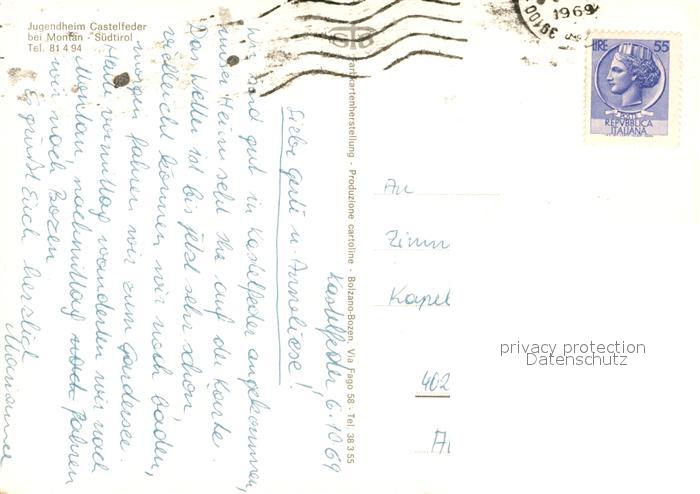 Jugendheim Castelfeder
bei Montan - Südtirol
Tel. 81 4 94
Kastelfeder 6.10.69
Liebe Gerti u. Anneliese!
Wir sind gut in Kastelfeder angekommen,
unser Heim seht Ihr auf der Karte.
Das Wetter ist bis jetzt sehr schön
vielleicht können wir noch baden,
morgen fahren wir zum Gardasee.
Heute vormittag wanderten wir nach
Montan, nachmittag fahren
wir nach Bozen
Es grüßt Euch herzlich
Marianne
Farbkartenherstellung - Produzione cartoline - Bolzano-Bozen, Via Fago 58 - Tel. 38 3 55
39100
1969
LIRE 55
POSTE
REPVBBLICA
ITALIANA
An
Zimm
Kapel
402
privacy protection
Datenschutz